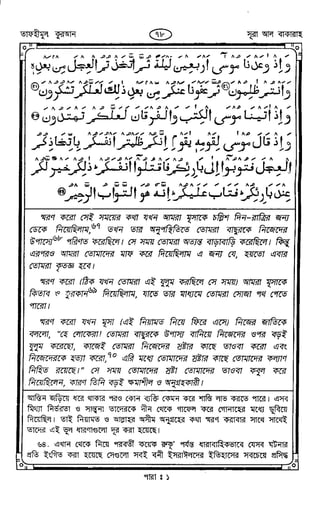 তাফহীমুল কুরআন
৭৮
সূরা আল বাকারাহ
وَإِذْ وٰعَدْنَا مُوْسٰٓى أَرْبَعِيْنَ لَيْلَةً ثُمَّ اتَّخَذْتُمُ الْعِجْلَ مِنْ بَعْدِهٖ
وَأَنْتُمْ ظٰلِمُوْنَ ۝ ثُمَّ عَفَوْنَا عَنْكُمْ مِّنْ بَعْدِ ذٰلِكَ لَعَلَّكُمْ تَشْكُرُوْنَ ۝
وَإِذْ اٰتَيْنَا مُوْسَى الْكِتٰبَ وَالْفُرْقَانَ لَعَلَّكُمْ تَهْتَدُوْنَ ۝
وَإِذْ قَالَ مُوْسٰى لِقَوْمِهٖ يٰقَوْمِ إِنَّكُمْ ظَلَمْتُمْ أَنْفُسَكُمْ بِاتِّخَاذِكُمُ
الْعِجْلَ فَتُوْبُوْٓا إِلٰى بَارِئِكُمْ فَاقْتُلُوْٓا أَنْفُسَكُمْ ذٰلِكُمْ خَيْرٌ لَّكُمْ
عِنْدَ بَارِئِكُمْ فَتَابَ عَلَيْكُمْ إِنَّهٗ هُوَ التَّوَّابُ الرَّحِيْمُ ۝
স্মরণ করো সেই সময়ের কথা যখন আমরা মূসাকে চল্লিশ দিন-রাত্রির জন্য
ডেকে নিয়েছিলাম,৬৭ তখন তার অনুপস্থিতিতে তোমরা বাছুরকে নিজেদের
উপাস্যে৬৮ পরিণত করেছিলে। সে সময় তোমরা অত্যন্ত বাড়াবাড়ি করেছিলে। কিন্তু
এরপরও আমরা তোমাদের মাফ করে দিয়েছিলাম এ জন্য যে, হয়তো এবার
তোমরা কৃতজ্ঞ হবে।
স্মরণ করো (ঠিক যখন তোমরা এই যুলুম করছিলে সে সময়) আমরা মূসাকে
কিতাব ও ফুরকান৬৯ দিয়েছিলাম, যাতে তার মাধ্যমে তোমরা সোজা পথ পেতে
পারো।
স্মরণ করো যখন মূসা (এই নিয়ামত নিয়ে ফিরে এসে) নিজের জাতিকে
বললো, "হে লোকেরা! তোমরা বাছুরকে উপাস্য বানিয়ে নিজেদের ওপর বড়ই
যুলুম করেছো, কাজেই তোমরা নিজেদের স্রষ্টার কাছে তাওবা করো এবং
নিজেদেরকে হত্যা করো,৭০ এরি মধ্যে তোমাদের স্রষ্টার কাছে তোমাদের কল্যাণ
নিহিত রয়েছে।" সে সময় তোমাদের স্রষ্টা তোমাদের তাওবা কবুল করে
নিয়েছিলেন, কারণ তিনি বড়ই ক্ষমাশীল ও অনুগ্রহকারী।
আস্তিন জড়িয়ে ধরে থাকার পরও কোন ব্যক্তি কেমন করে শাস্তি লাভ করতে পারে। এসব
মিথ্যা নির্ভরতা ও সান্ত্বনা তাদেরকে দীন থেকে গাফেল করে গোনাহের মধ্যে ডুবিয়ে
দিয়েছিল। তাই নিয়ামত ও আল্লাহর অসীম অনুগ্রহের কথা স্মরণ করাবার সাথে সাথেই
তাদের এই ভুল ধারণাগুলো দূর করা হয়েছে।
৬৪. এখান থেকে নিয়ে পরবর্তী কয়েক রুকূ' পর্যন্ত ধারাবাহিকভাবে যেসব ঘটনার
প্রতি ইংগিত করা হয়েছে সেগুলো সবই বনী ইসরাঈলদের ইতিহাসের সবচেয়ে প্রসিদ্ধ
পারা : ১